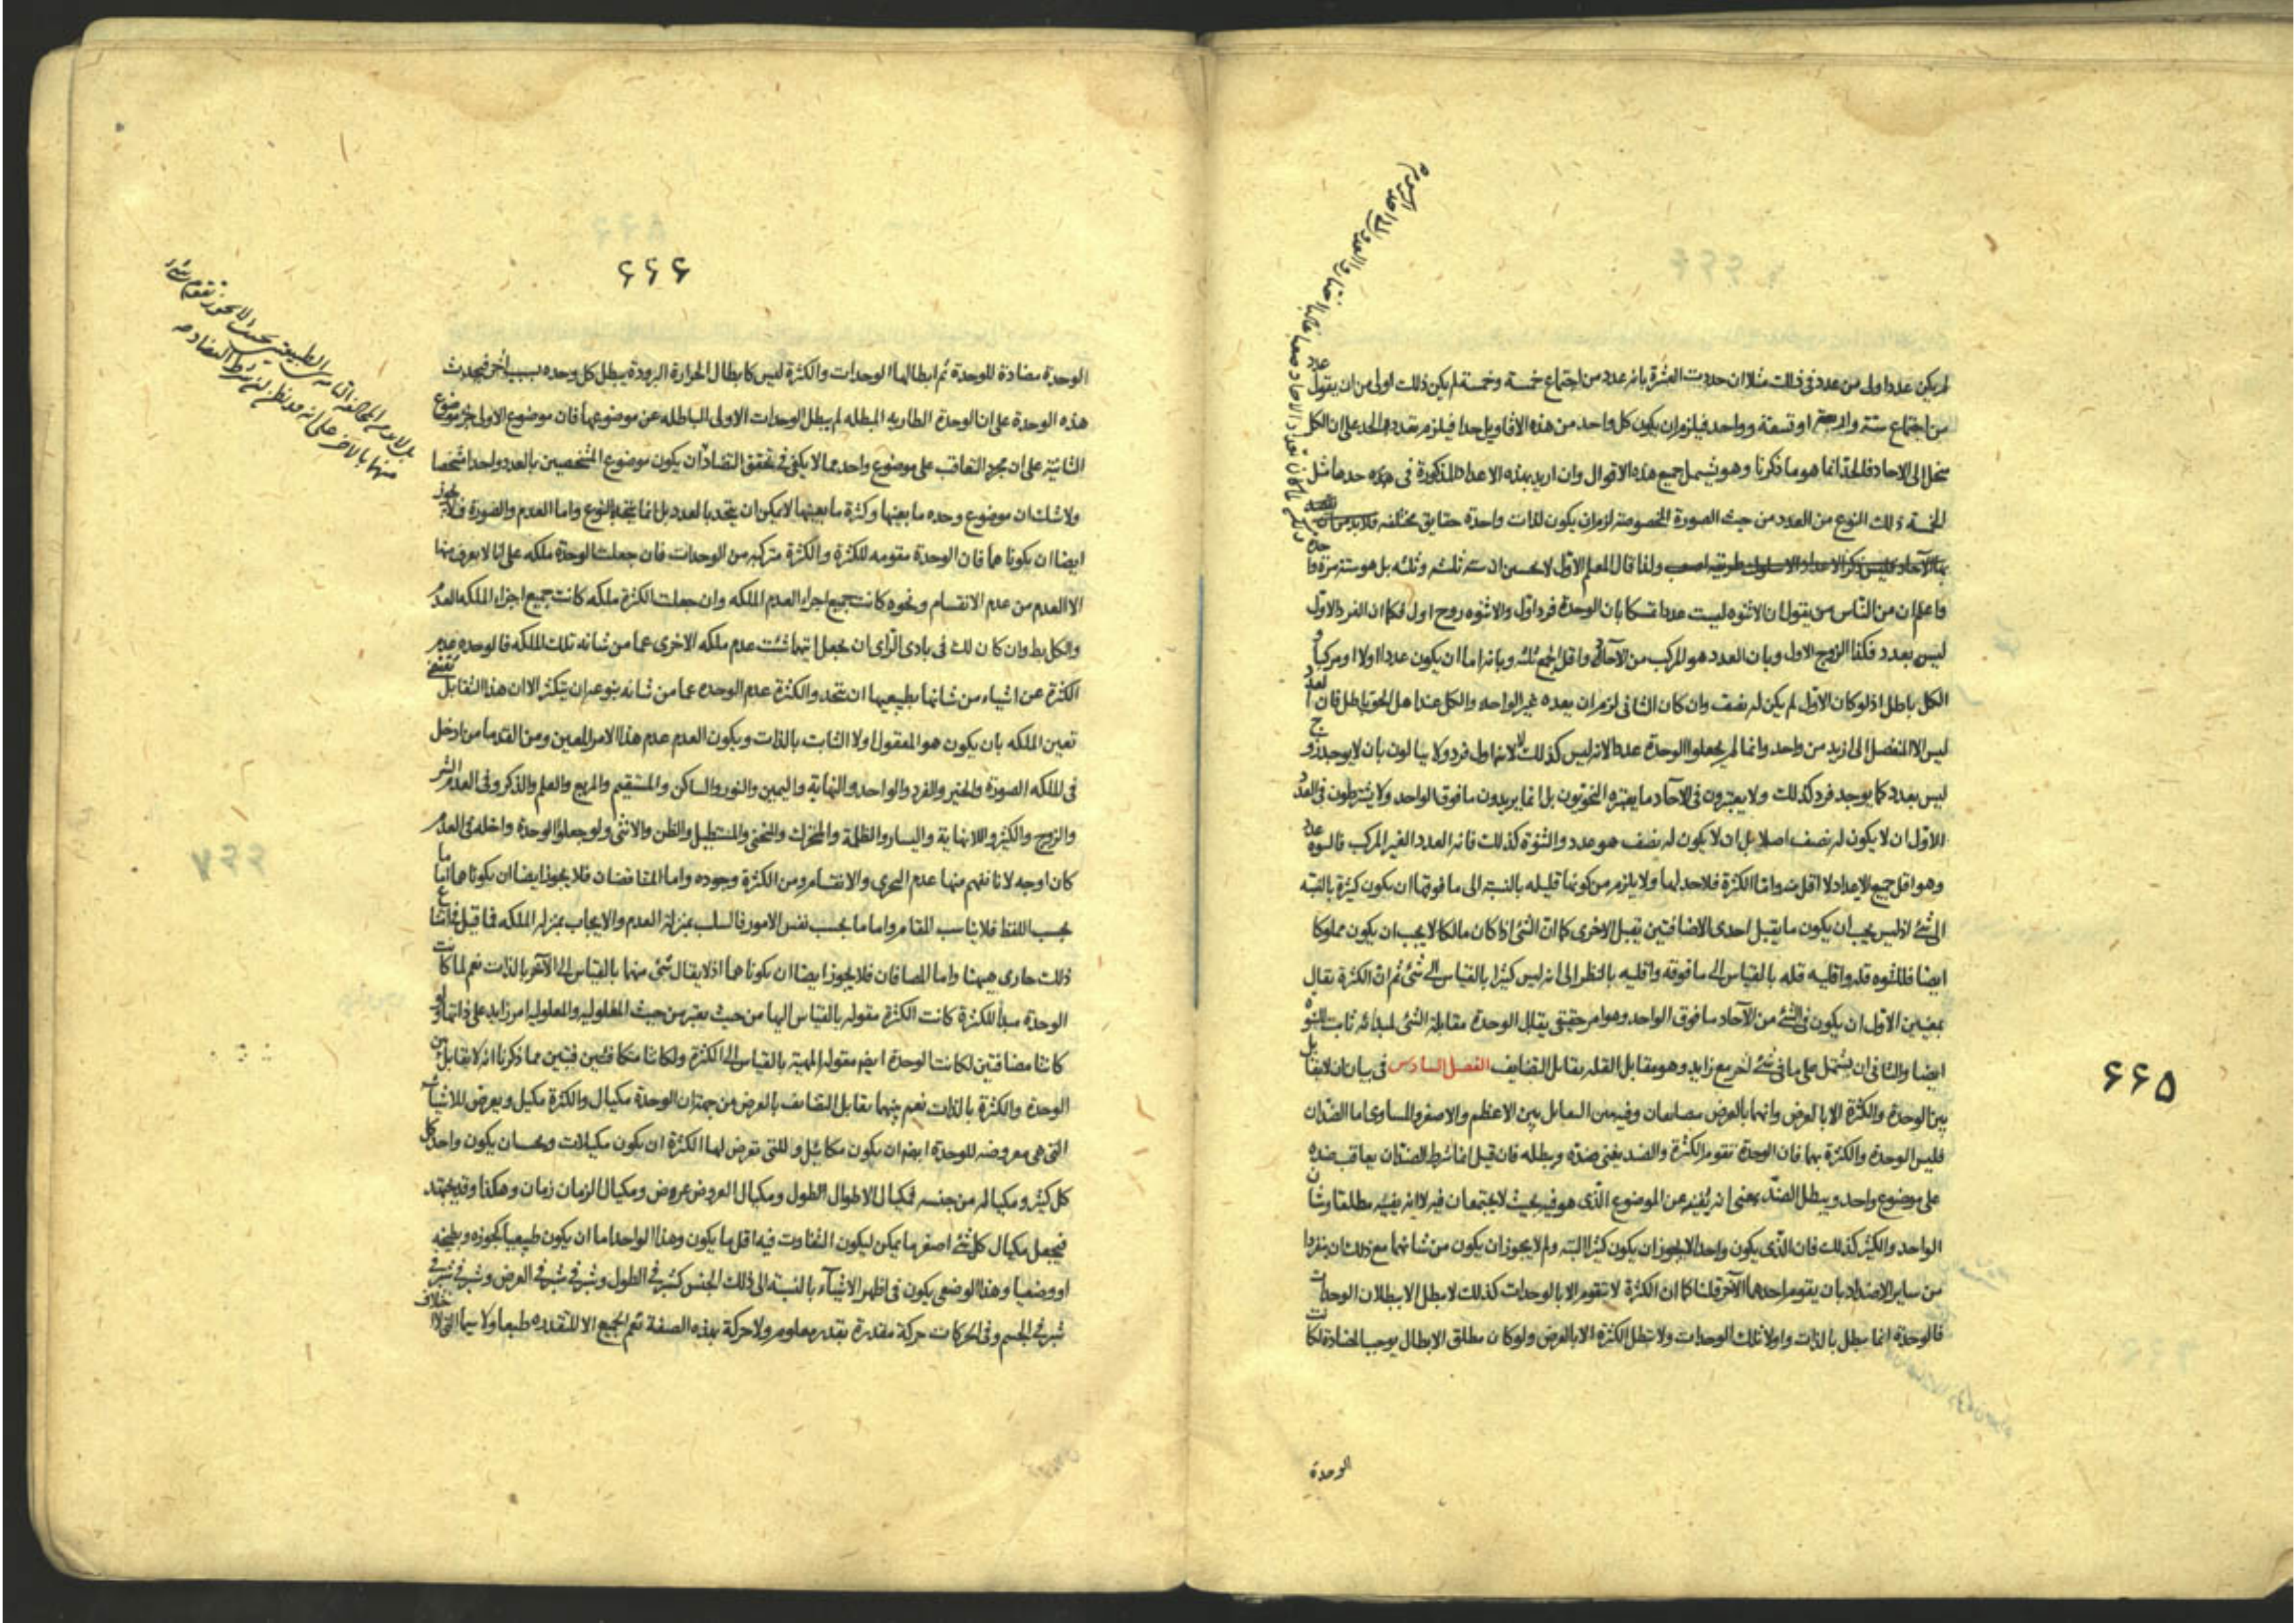 لم يكن عدد اولى من عدد فى ذلك مثلا ان حددت العشرة بانه عدد من اجتماع خمسة وخمسة لم يكن ذلك اولى من ان يقول
من اجتماع ستة واربعة او تسعة وواحد فيلزم ان يكون كل واحد من هذه الاقاويل حدا فيلزم تعدد الحد على ان الكل
ينحل الى الاحاد فالحد انما هو ما ذكرنا وهو يشمل جميع هذه الاقوال وان اريد بهذه الاعداد المذكورة فى هذه حدها مثل
الخمسة ذلك النوع من العدد من حيث الصورة المخصوصة لزم ان يكون لذات واحدة حقايق مختلفة
ولذا قال المعلم الاول لا تحسبن ان ستة ثلثه وثلثه بل هو ستة مرة
واعلم ان من الناس من يقول ان الاثنوه ليست عددا تمسكا بان الوحدة فرد اول والاثنوه زوج اول فكما ان الفرد الاول
ليس بعدد فكذا الزوج الاول وبان العدد هو المركب من الآحاد واقل الجمع ثلثه وبانه اما ان يكون عددا اولا او مركبا و
الكل باطل اذ لو كان الاول لم يكن له نصف وان كان الثانى لزم ان يعده غير الواحد والكل عند اهل الحق باطل فان العدد
ليس الا المنفصل الى ازيد من واحد وانما لم يجعلوا الوحدة عددا لانه ليس كذلك لا لانها اول فرد ولا يبالون بان لا يوجد زوج
ليس بعدد كما يوجد فرد كذلك ولا يعتبرون فى الآحاد ما يعتبره النحويون بل انما يريدون ما فوق الواحد ولا يشترطون فى العدد
الاول ان لا يكون له نصف اصلا بل ان لا يكون له نصف هو عدد والثنوة كذلك فانه العدد الغير المركب فالثنوة عدد
وهو اقل جميع الاعداد لا اقل منه واما الكثرة فلا حد لها ولا يلزم من كونها قليله بالنسبة الى ما فوقها ان يكون كثيرة بالنسبة
الى شئ اذ ليس يجب ان يكون ما يقبل احدى الاضافتين تقبل الاخرى كما ان الشئ اذا كان مالكا لا يجب ان يكون مملوكا
ايضا فللثنوه قله واقليه قله بالقياس الى ما فوقه واقليه بالنظر الى انه ليس كثيرا بالقياس الى شئ ثم ان الكثرة تقال
بمعنيين الاول ان يكون فى الشئ من الآحاد ما فوق الواحد وهو امر حقيقى يقابل الوحدة مقابلة الشئ لمبدائه ثابت للثنوة
ايضا والثانى ان يشتمل على ما فى شئ آخر مع زايد وهو مقابل القله تقابل التضايف الفصل السادس فى بيان ان لا تقابل
بين الوحدة والكثرة الا بالعرض وانهما بالعرض متضايفان وفيه بيان التقابل بين الاعظم والاصغر والمساوى اما الضدان
فليس الوحدة والكثرة بهما فان الوحدة تقوم الكثرة والضد يفنى ضده ويبطله فان قيل انما شرط الضدان يعاقب ضده
على موضوع واحد ويبطل الضد بمعنى انه يفنيه عن الموضوع الذى هو فيه بحيث لا يجتمعان فيه لا انه يفنيه مطلقا وشان
الواحد والكثير كذلك فان الذى يكون واحدا لا يجوز ان يكون كثيرا البته ولم لا يجوز ان يكون من شانهما مع ذلك ان ينفردا
من ساير الاضداد بان يقوم احدهما الآخر قلنا كما ان الكثرة لا تقوم الا بالوحدات كذلك لا تبطل الا ببطلان الوحدات
فالوحدة انما تبطل بالذات واولا تلك الوحدات ولا تبطل الكثرة الا بالعرض ولو كان مطلق الابطال يوجب المضادة لكانت
الوحدة
۶۶۵
۶۶۶
الوحدة مضادة للوحدة ثم ابطالها الوحدات والكثرة ليس كابطال الحرارة البرودة يبطل كل وحده بسبب آخر فيحدث
هذه الوحدة على ان الوحدة الطاريه المبطله لم يبطل الوحدات الاولى الباطله عن موضوعها فان موضوع الاولى جزء موضوع
الثانية على ان مجرد التعاقب على موضوع واحد مما لا يكفى فى تحقق التضاد ان يكون موضوع الشخصيين بالعدد واحدا شخصا
ولا شك ان موضوع وحده ما بعينها وكثرة ما بعينها لا يمكن ان يتحد بالعدد بل انما يتحد بالنوع واما العدم والصورة فلا يجوز
ايضا ان يكونا هما فان الوحدة مقومه للكثرة والكثرة متركبه من الوحدات فان جعلت الوحدة ملكه على انا لا نعرف منها
الا العدم من عدم الانقسام ونحوه كانت جميع اجزاء العدم الملكه وان جعلت الكثرة ملكه كانت جميع اجزاء الملكه العدم
والكل بط وان كان لك فى بادى الراى ان يجعل ايتهما شئت عدم ملكه الاخرى عما من شانه تلك الملكه فالوحده عدم
الكثرة عن اشياء من شانها بطبيعتها ان تتحد والكثرة عدم الوحده عما من شانه بنوعه ان يتكثر الا ان هذا التقابل يقتضى
تعين الملكه بان يكون هو المعقول اولا الثابت بالذات ويكون العدم عدم هذا الامر المعين ومن القدما من ادخل
فى الملكه الصورة والخير والفرد والواحد والنهاية واليمين والنور والساكن والمستقيم والمربع والعلم والذكر وفى العدم الشر
والزوج والكثير واللانهاية واليسار والظلمة والمتحرك والمنحنى والمستطيل والظن والانثى ولو جعلوا الوحدة داخله فى العدم
كان اوجه لانا نفهم منها عدم التجزى والانقسام ومن الكثرة وجوده واما المتناقضان فلا يجوز ايضا ان يكونا هما اما
بحسب اللفظ فلا يناسب المقام واما ما بحسب نفس الامور فالسلب بمنزله العدم والايجاب بمنزله الملكه فما قيل فى
ذلك جارى هيهنا واما المضافان فلا يجوز ايضا ان يكونا هما اذ لا يقال شئ منهما بالقياس الى الآخر بالذات نعم لما كانت
الوحدة مبدأ للكثرة كانت الكثرة مقوله بالقياس اليها من حيث يعتبر من حيث المعلوليه والمعلوليه امر زايد على ذاتها ولو
كانتا مضافتين لكانت الوحدة ايضا مقوله المهية بالقياس الى الكثرة ولكانتا متكافئتين فتبين مما ذكرنا انه لا تقابل بين
الوحدة والكثرة بالذات نعم بينهما تقابل التضايف بالعرض من جهة ان الوحدة مكيال والكثرة مكيل ويعرض للاشياء
التى هى معروضه للوحدة ايضا ان يكون مكائيل وللتى تعرض لها الكثرة ان يكون مكيلات ويجب ان يكون واحد كل
كل كثير ومكياله من جنسه فمكيال الاطوال الطول ومكيال العروض عروض ومكيال الزمان زمان وهكذا وقد يجتهد
فيجعل مكيال كل شئ اصغر ما يمكن ليكون التفاوت فيه اقل ما يكون وهذا الواحد اما ان يكون طبيعيا كجوزه وبطيخه
او وضعيا وهذا الوضعى يكون فى اظهر الاشياء بالنسبة الى ذلك الجنس كشبر فى الطول وشبر فى شبر فى العرض وشبر فى شبر فى
شبر فى الجسم وفى الحركات حركة مقدرة بقدر معلوم ولا حركة بهذه الصفة تعم الجميع الا المتقدره طبعا ولا سيما التى لا خلاف